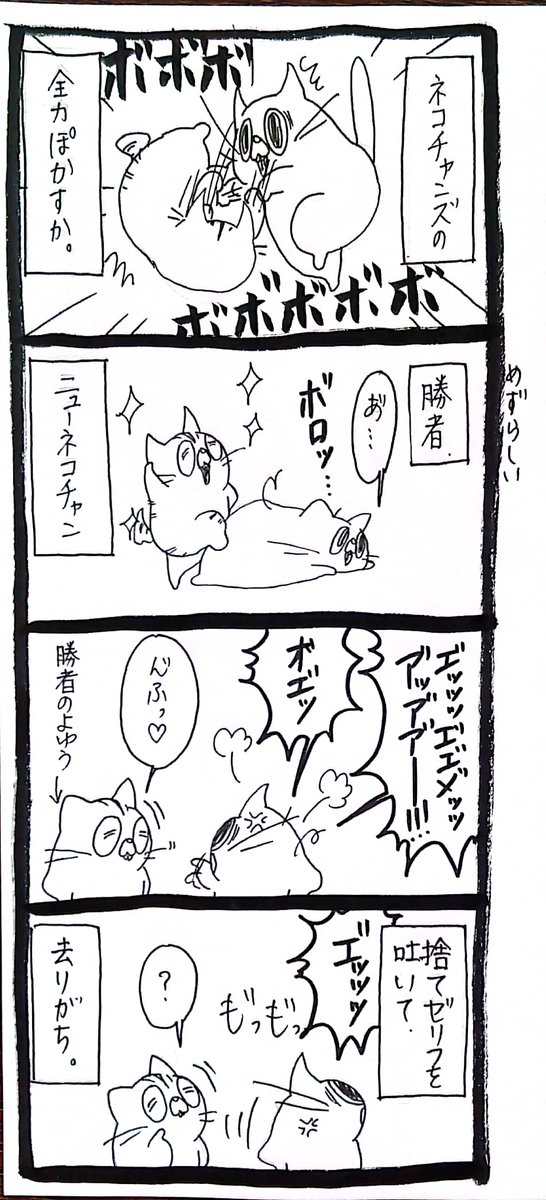 ネコチャンズの
ボボボ
全力ぽかすか。
ボボボボボ
めずらしい
勝者.
あ゛…
ボロッ…
ニューネコチャン
エ゛ッッッエ゛エ゛メ゛ッッ
ア゛ッア゛ア゛ー!!!…
オ゛エ゛ッ
んふっ♡
勝者のよゆう
捨てゼリフを
吐いて.
エ゛ッッッ
もっもっ
?
去りがち。